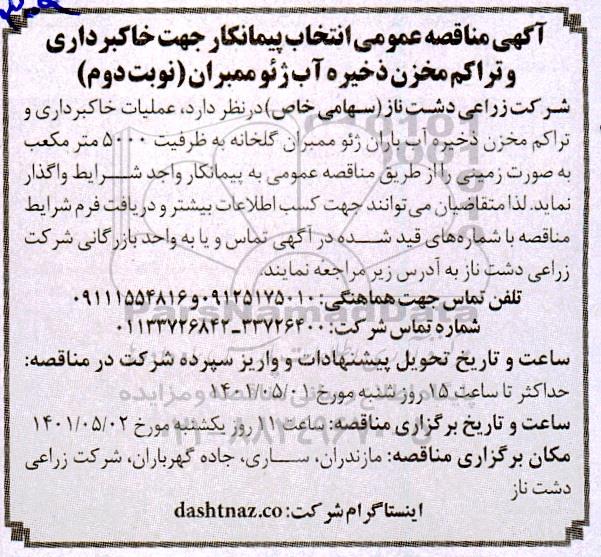 آگهی مناقصه عمومی انتخاب پیمانکار جهت خاکبرداری
و تراکم مخزن ذخیره آب ژئو ممبران (نوبت دوم)
شرکت زراعی دشت ناز (سهامی خاص) درنظر دارد، عملیات خاکبرداری و
تراکم مخزن ذخیره آب باران ژئو ممبران گلخانه به ظرفیت ۵۰۰۰ متر مکعب
به صورت زمینی را از طریق مناقصه عمومی به پیمانکار واجد شرایط واگذار
نماید. لذا متقاضیان می‌توانند جهت کسب اطلاعات بیشتر و دریافت فرم شرایط
مناقصه با شماره‌های قید شده در آگهی تماس و یا به واحد بازرگانی شرکت
زراعی دشت ناز به آدرس زیر مراجعه نمایند.
تلفن تماس جهت هماهنگی: ۰۹۱۲۵۱۷۵۰۱۰ و ۰۹۱۱۱۵۵۴۸۱۶
شماره تماس شرکت: ۳۳۷۲۶۴۰۰-۰۱۱۳۳۷۲۶۸۴۲
ساعت و تاریخ تحویل پیشنهادات و واریز سپرده شرکت در مناقصه:
حداکثر تا ساعت ۱۵ روز شنبه مورخ ۱۴۰۱/۰۵/۰۱
ساعت و تاریخ برگزاری مناقصه: ساعت ۱۱ روز یکشنبه مورخ ۱۴۰۱/۰۵/۰۲
مکان برگزاری مناقصه: مازندران، ساری، جاده گهرباران، شرکت زراعی
دشت ناز
اینستاگرام شرکت: dashtnaz.co
ParsNamadData